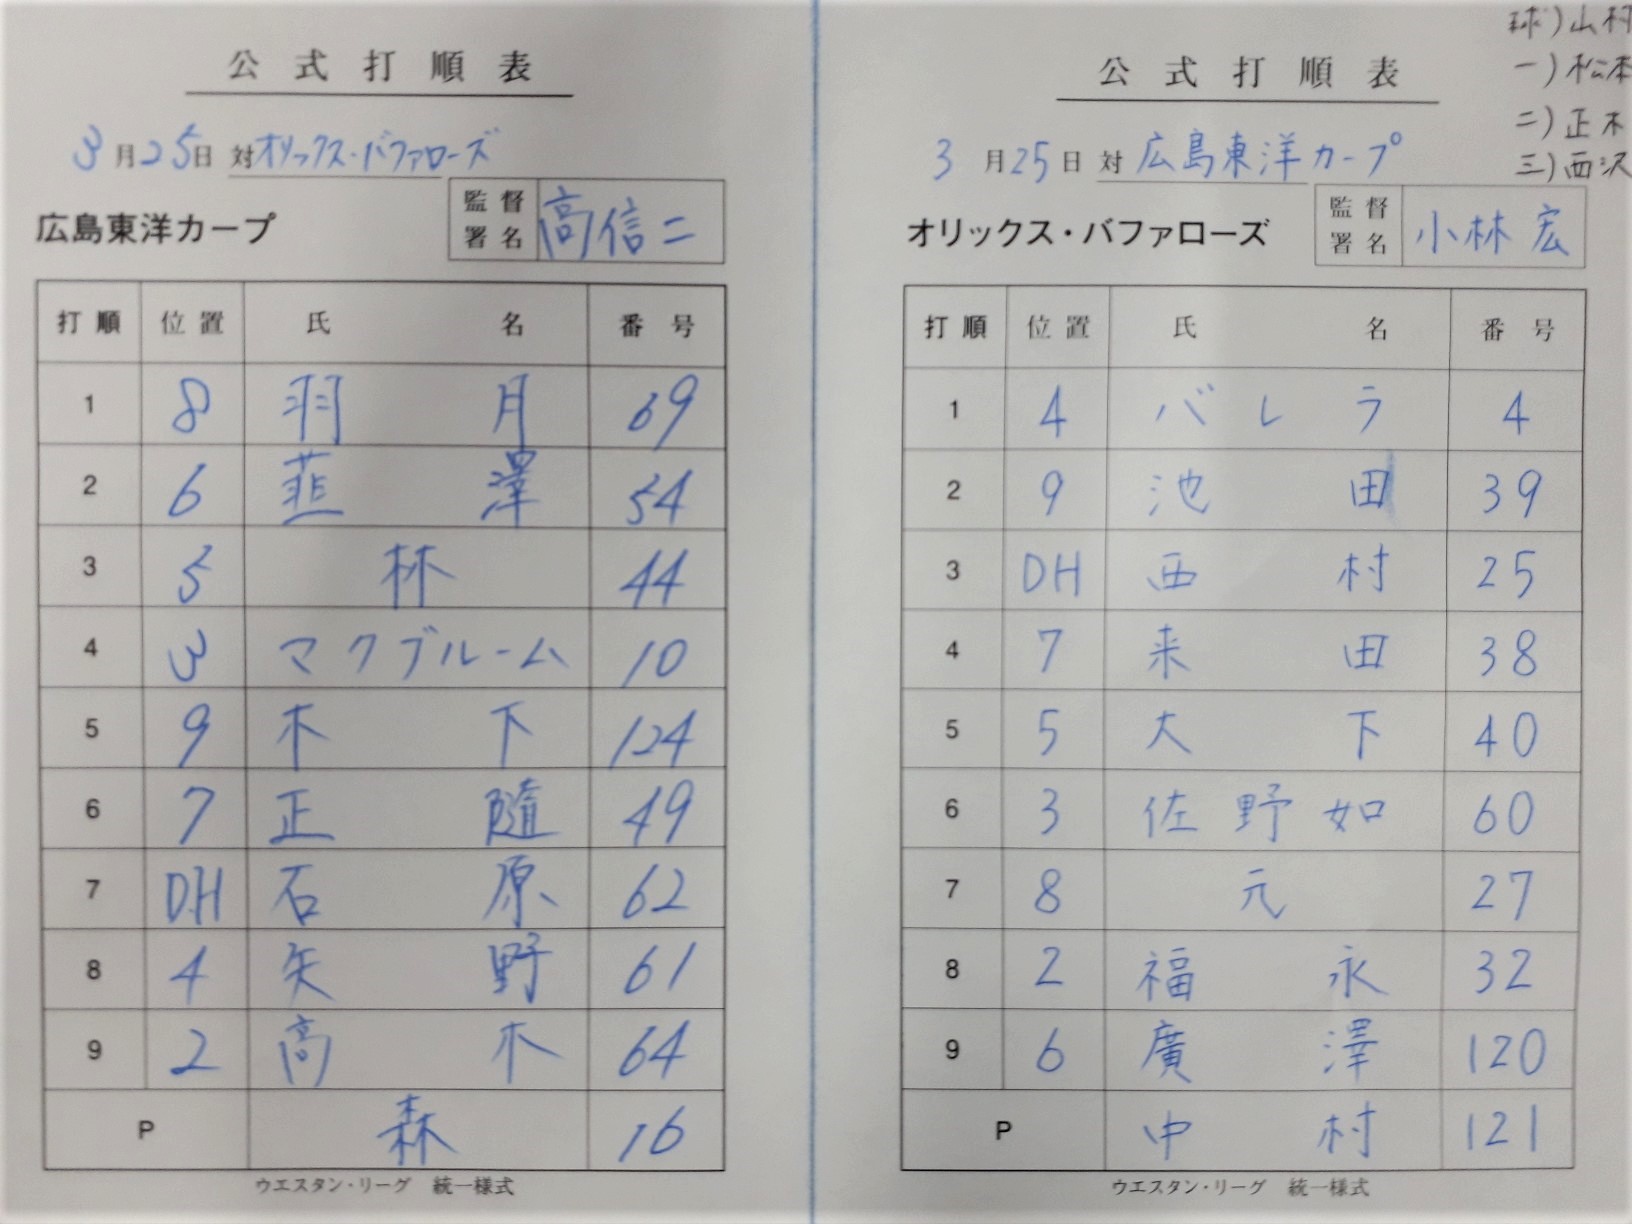 公式打順表
3月25日 対 オリックス・バファローズ
広島東洋カープ
監督署名 高信二
打順 位置 氏名 番号
1 8 羽月 69
2 6 韮澤 54
3 5 林 44
4 3 マクブルーム 10
5 9 木下 124
6 7 正随 49
7 DH 石原 62
8 4 矢野 61
9 2 高木 64
P 森 16
ウエスタン・リーグ 統一様式
公式打順表
3月25日 対 広島東洋カープ
オリックス・バファローズ
監督署名 小林宏
打順 位置 氏名 番号
1 4 バレラ 4
2 9 池田 39
3 DH 西村 25
4 7 来田 38
5 5 大下 40
6 3 佐野如 60
7 8 元 27
8 2 福永 32
9 6 廣澤 120
P 中村 121
ウエスタン・リーグ 統一様式
球)山村
一)松本
二)正木
三)西沢